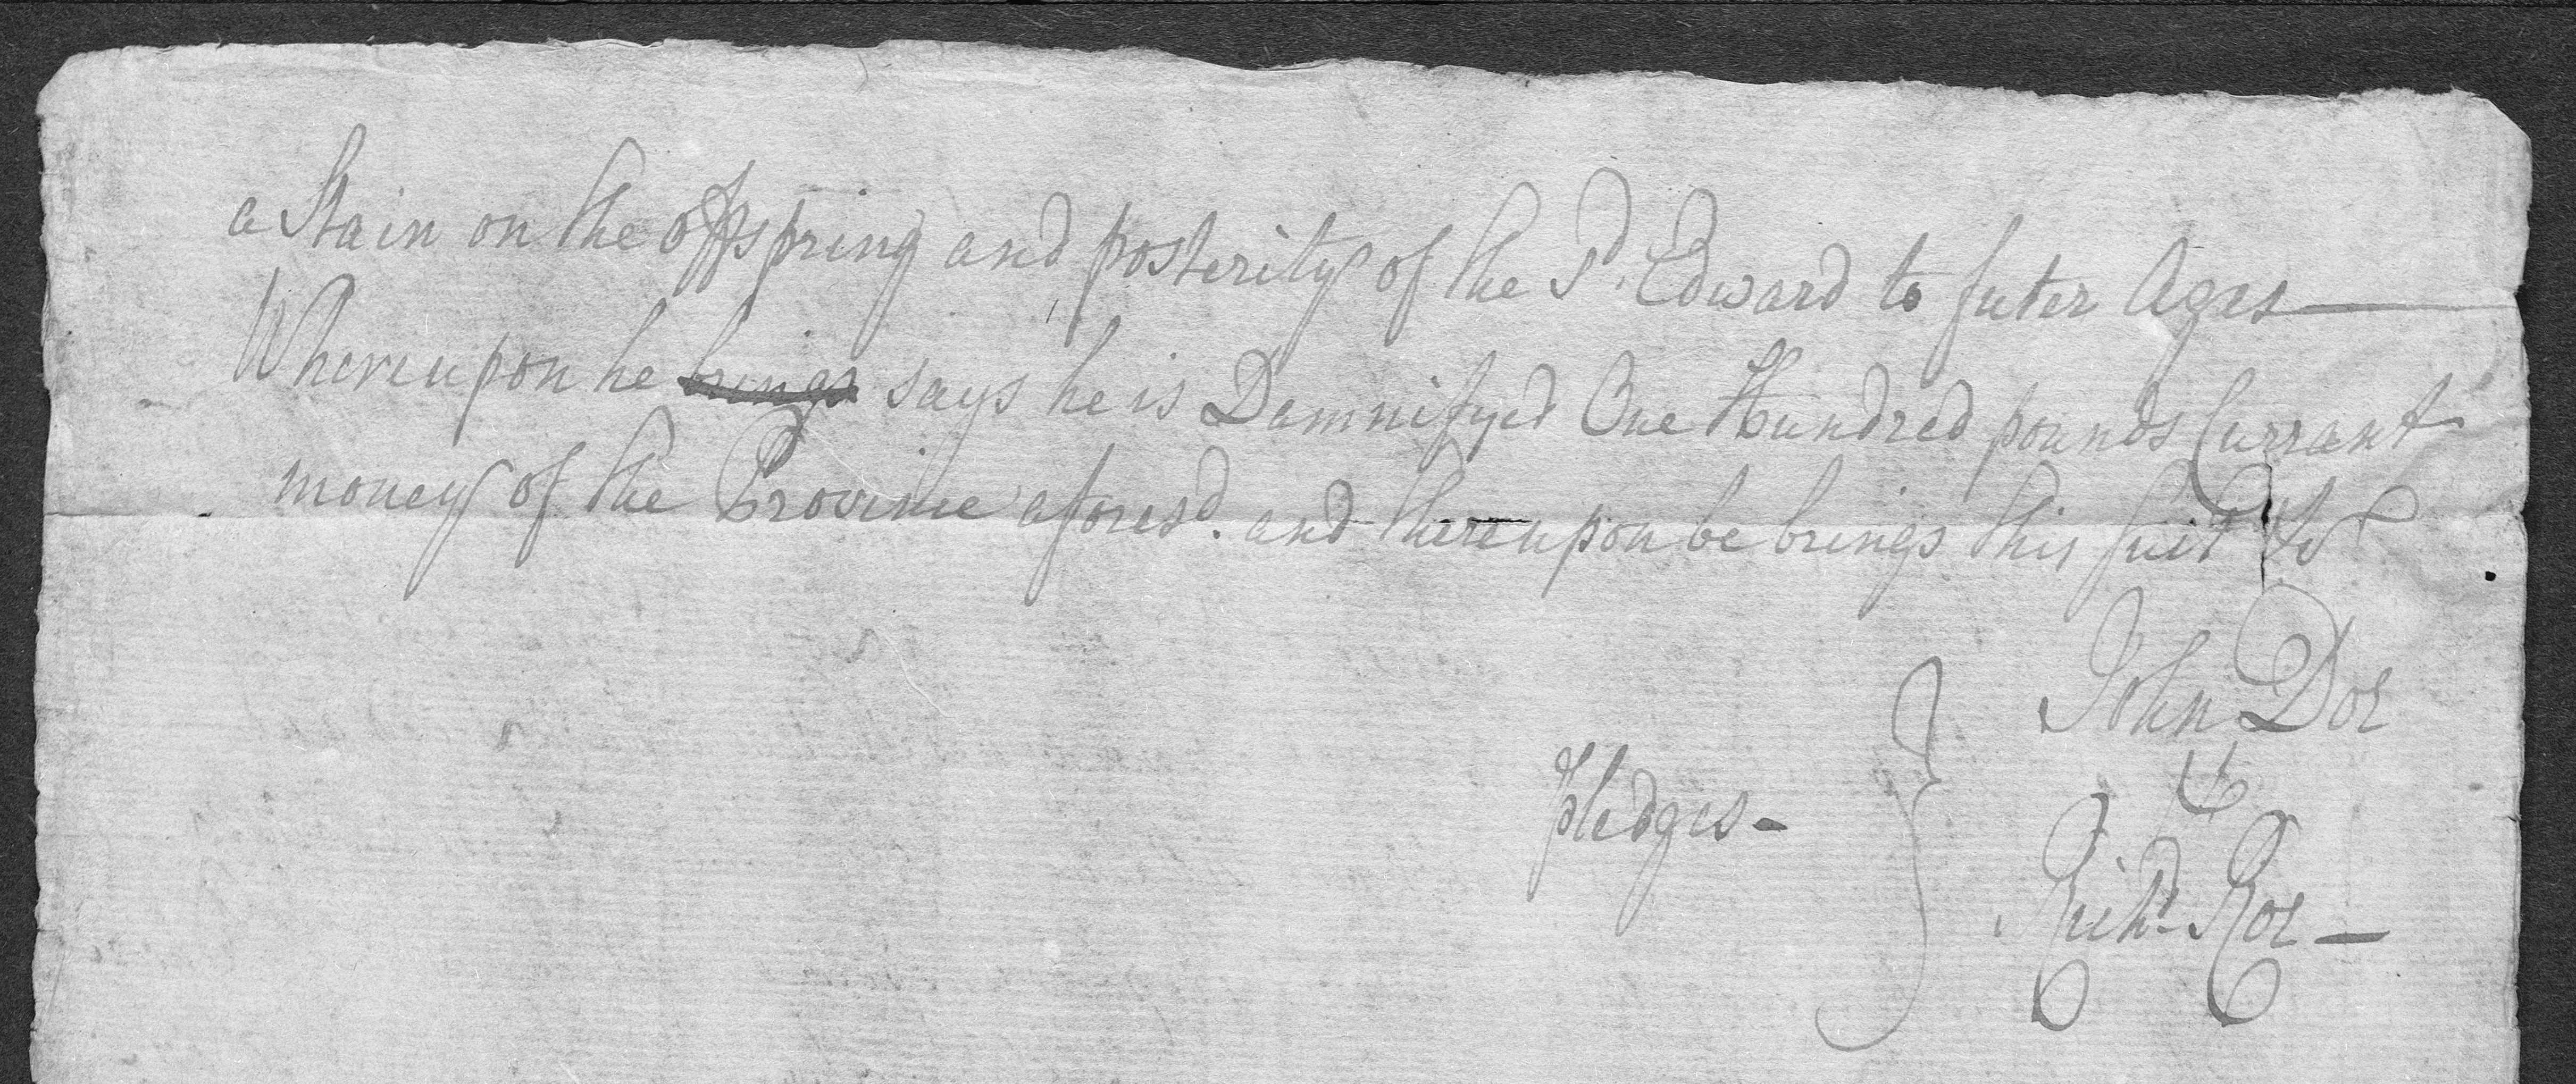 a Stain on the offspring and posterity of the Sd. Edward to futer Ages—
Whereupon he brings says he is Damnifyed One Hundred pounds Currant
money of the Province aforesd. and thereupon he brings this suit &c
John Doe
pledges- } &
Richd. Roe —